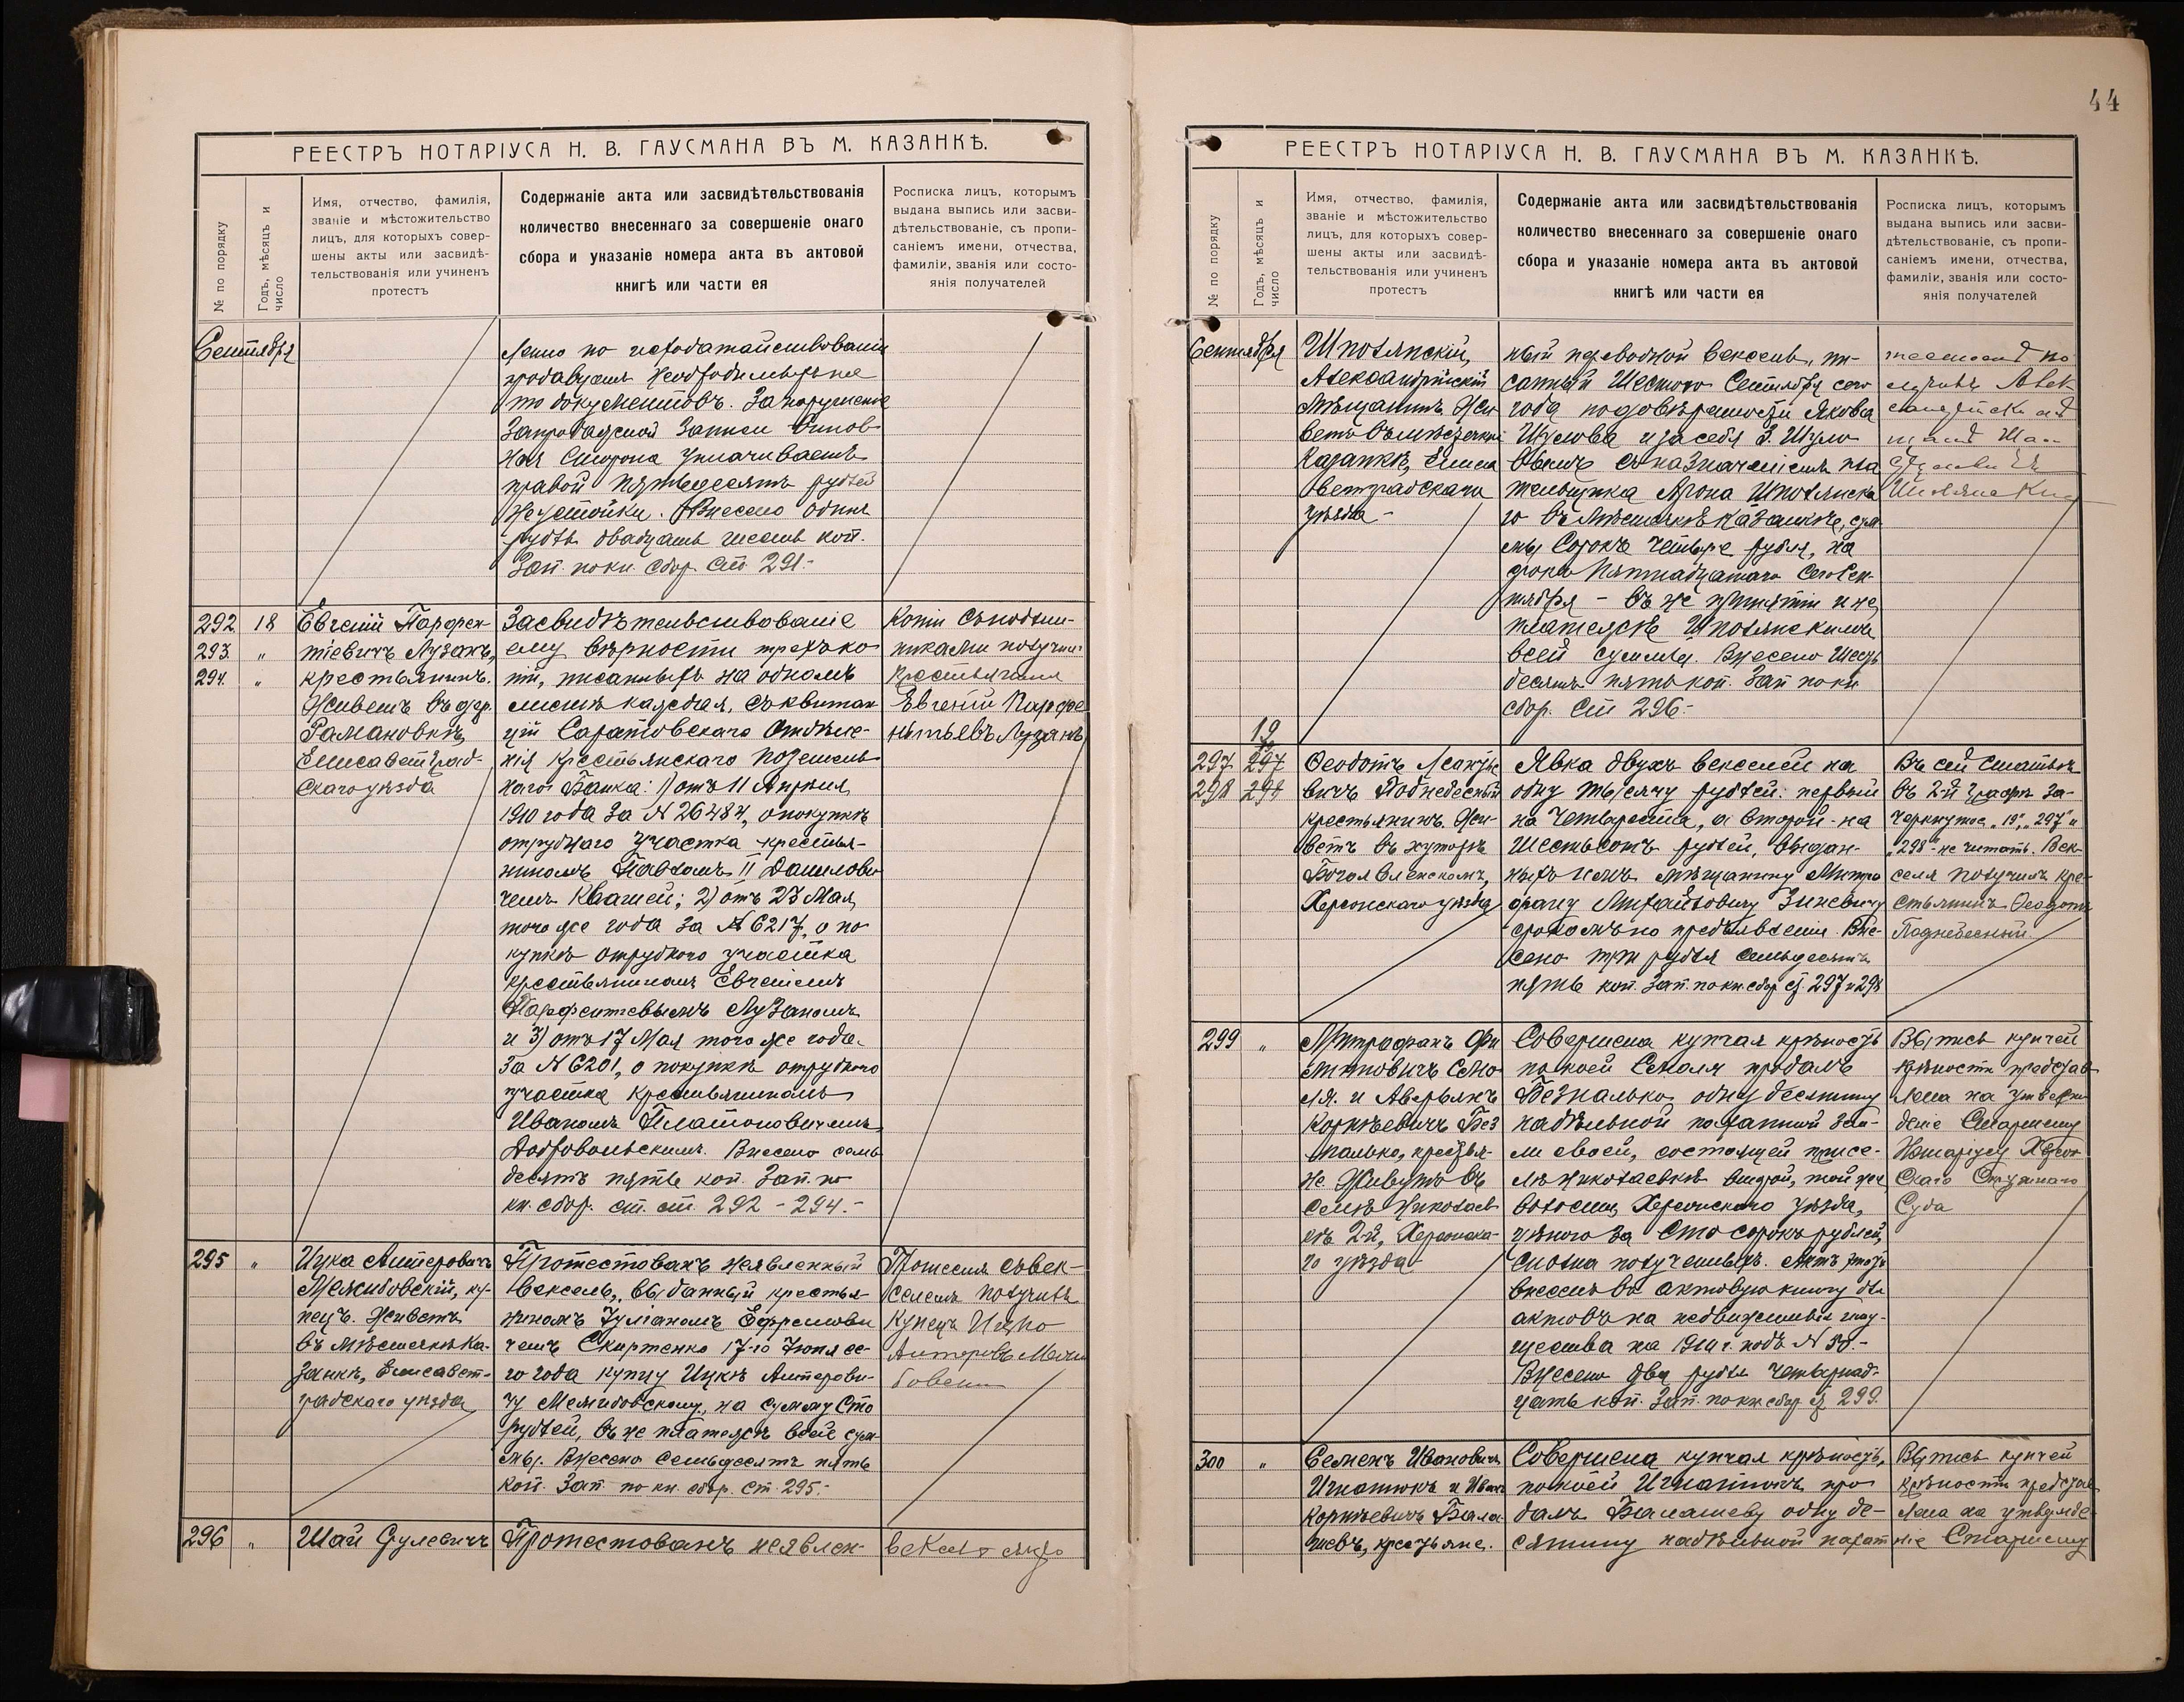 РЕЕСТРЪ НОТАРІУСА Н. В. ГАУСМАНА ВЪ М. КАЗАНКѢ.
№ по порядку
Годъ, мѣсяцъ и
число
Имя, отчество, фамилія,
званіе и мѣстожительство
лицъ, для которыхъ совер-
шены акты или засвидѣ-
тельствованія или учиненъ
протестъ
Содержаніе акта или засвидѣтельствованія
количество внесеннаго за совершеніе онаго
сбора и указаніе номера акта въ актовой
книгѣ или части ея
Росписка лицъ, которымъ
выдана выпись или засви-
дѣтельствованіе, съ пропи-
саніемъ имени, отчества,
фамиліи, званія или состо-
янія получателей
Сентября
по исходатайствованіи
продавцемъ
документовъ. За нарушеніе
запродажной записи винов-
ная сторона уплачиваетъ
правой пятьдесятъ рублей
неустойки. Внесено одинъ
рубль двадцать шесть коп.
Зап. по кн. сбор. ст. 291.-
292 18
293. "
294. "
Евгеній Парфен-
тіевичъ Лузанъ,
крестьянинъ.
Живетъ въ дер.
Романовкѣ,
Елисаветград-
скаго уѣзда
Засвидѣтельствованіе
вѣрности трехъ ко-
пій, писанныхъ на одномъ
листѣ каждая, съ квитан-
цій Саратовскаго Отдѣле-
нія Крестьянскаго Поземель-
наго Банка: 1) отъ 11 Апрѣля
1910 года за № 26484, о покупкѣ
отрубнаго участка крестья-
ниномъ Павломъ II Данилови-
чемъ Квашей; 2) отъ 23 Мая
того же года за № 6217, о по-
купкѣ отрубного участка
крестьяниномъ Евгеніемъ
Парфентіевымъ Лузаномъ
и 3) отъ 17 Мая того же года
за № 6201, о покупкѣ отрубного
участка крестьяниномъ
Иваномъ Платоновичемъ
Добровольскимъ. Внесено семь-
десятъ пять коп. Зап. по
кн. сбор. ст. ст. 292 - 294.-
Копіи съ подлин-
никами получилъ
Крестьянинъ
Евгеній Парфе
нтьевъ Лузанъ
295 "
Ицка Алтеровичъ
Межибовскій, ку-
пецъ. Живетъ
въ мѣстечкѣ Ка-
занкѣ, Елисавет-
градскаго уѣзда
Протестованъ неявленный
вексель, выданный крестья-
ниномъ Іуліаномъ Ефремови-
чемъ Скиртенко 17-го Іюня се-
го года купцу Ицкѣ Алтерови-
чу Межибовскому, на сумму сто
рублей, въ не платежѣ всей сум-
мы. Внесено семьдесятъ пять
коп. Зап. по кн. сбор. ст. 295.-
съ век-
селемъ получилъ
Купецъ Ицко
Алтеровъ
296 "
Шая Сулевичъ
Протестованъ неявлен-
44
РЕЕСТРЪ НОТАРІУСА Н. В. ГАУСМАНА ВЪ М. КАЗАНКѢ.
№ по порядку
Годъ, мѣсяцъ и
число
Имя, отчество, фамилія,
званіе и мѣстожительство
лицъ, для которыхъ совер-
шены акты или засвидѣ-
тельствованія или учиненъ
протестъ
Содержаніе акта или засвидѣтельствованія
количество внесеннаго за совершеніе онаго
сбора и указаніе номера акта въ актовой
книгѣ или части ея
Росписка лицъ, которымъ
выдана выпись или засви-
дѣтельствованіе, съ пропи-
саніемъ имени, отчества,
фамиліи, званія или состо-
янія получателей
Сентября
Шполянскій,
Александрійскій
мѣщанинъ. Жи-
ветъ въ мѣстечкѣ
Казанкѣ, Елиса-
ветградскаго
уѣзда
ный переводной вексель, пи-
санный Шестого Сентября сего
года по довѣренности Якова
Шулова и за себя З. Шуло-
вымъ съ назначеніемъ пла-
тельщика Арона Шполянска-
го въ мѣстечкѣ Казанкѣ, сум-
мы сорокъ четыре рубля, на
срокъ Пятнадцатаго сего Сен-
тября - въ не принятіи и не
платежѣ Шполянскимъ
всей суммы. Внесено Шесть-
десятъ пять коп. Зап. по кн.
сбор. ст. 296.-
19
297 297
298 298
Ѳеодотъ
вичъ Поднебесный
крестьянинъ. Жи-
ветъ въ хуторѣ
Богоявленскомъ,
Херсонскаго уѣзда
Явка двухъ векселей на
одну тысячу рублей: первый
на четыреста, а второй - на
шестьсотъ рублей, выдан-
ныхъ имъ мѣщанину Митро-
фану Михайловичу Зиневичу
срокомъ по предъявленіи. Вне-
сено три рубля семьдесятъ
пять коп. Зап. по кн. сбор. ст. 297 и 298
Въ сей статьѣ
въ 2-й графѣ за-
черкнутое „19", „297" и
„298" не читать. Век-
селя получилъ кре-
стьянинъ Ѳеодотъ
Поднебесный.
299 "
Митрофанъ Фи-
липповичъ Семо-
ля. и Аверьянъ
Корнѣевичъ Без
палько, крестья-
не. Живутъ въ
селѣ Николаев-
кѣ 2-й, Херсонска-
го уѣзда
Совершена купчая крѣпость
по коей Семоля продалъ
Безпалько одну десятину
надѣльной пахатной зем-
ли своей, состоящей при се-
лѣ Николаевкѣ второй, той же
волости, Херсонскаго уѣзда,
цѣною за сто сорокъ рублей,
сполна полученыхъ. Актъ этотъ
внесенъ въ актовую книгу для
актовъ на недвижимыя иму-
щества на 1910 г. подъ № 50.-
Внесено два рубля четырнад-
цать коп. Зап. по кн. сбор. ст. 299.
Выпись купчей
крѣпости представ-
лена на утверж-
деніе Старшему
Нотаріусу Херсон
скаго Окружнаго
Суда
300 "
Семенъ Ивановичъ
Игнатюкъ и Иванъ
Корнѣевичъ Бала-
шевъ, крестьяне.
Совершена купчая крѣпость,
по коей Игнатюкъ про-
далъ Балашеву одну де-
сятину надѣльной пахат
Выпись купчей
крѣпости представ-
лена на утвержде-
ніе Старшему